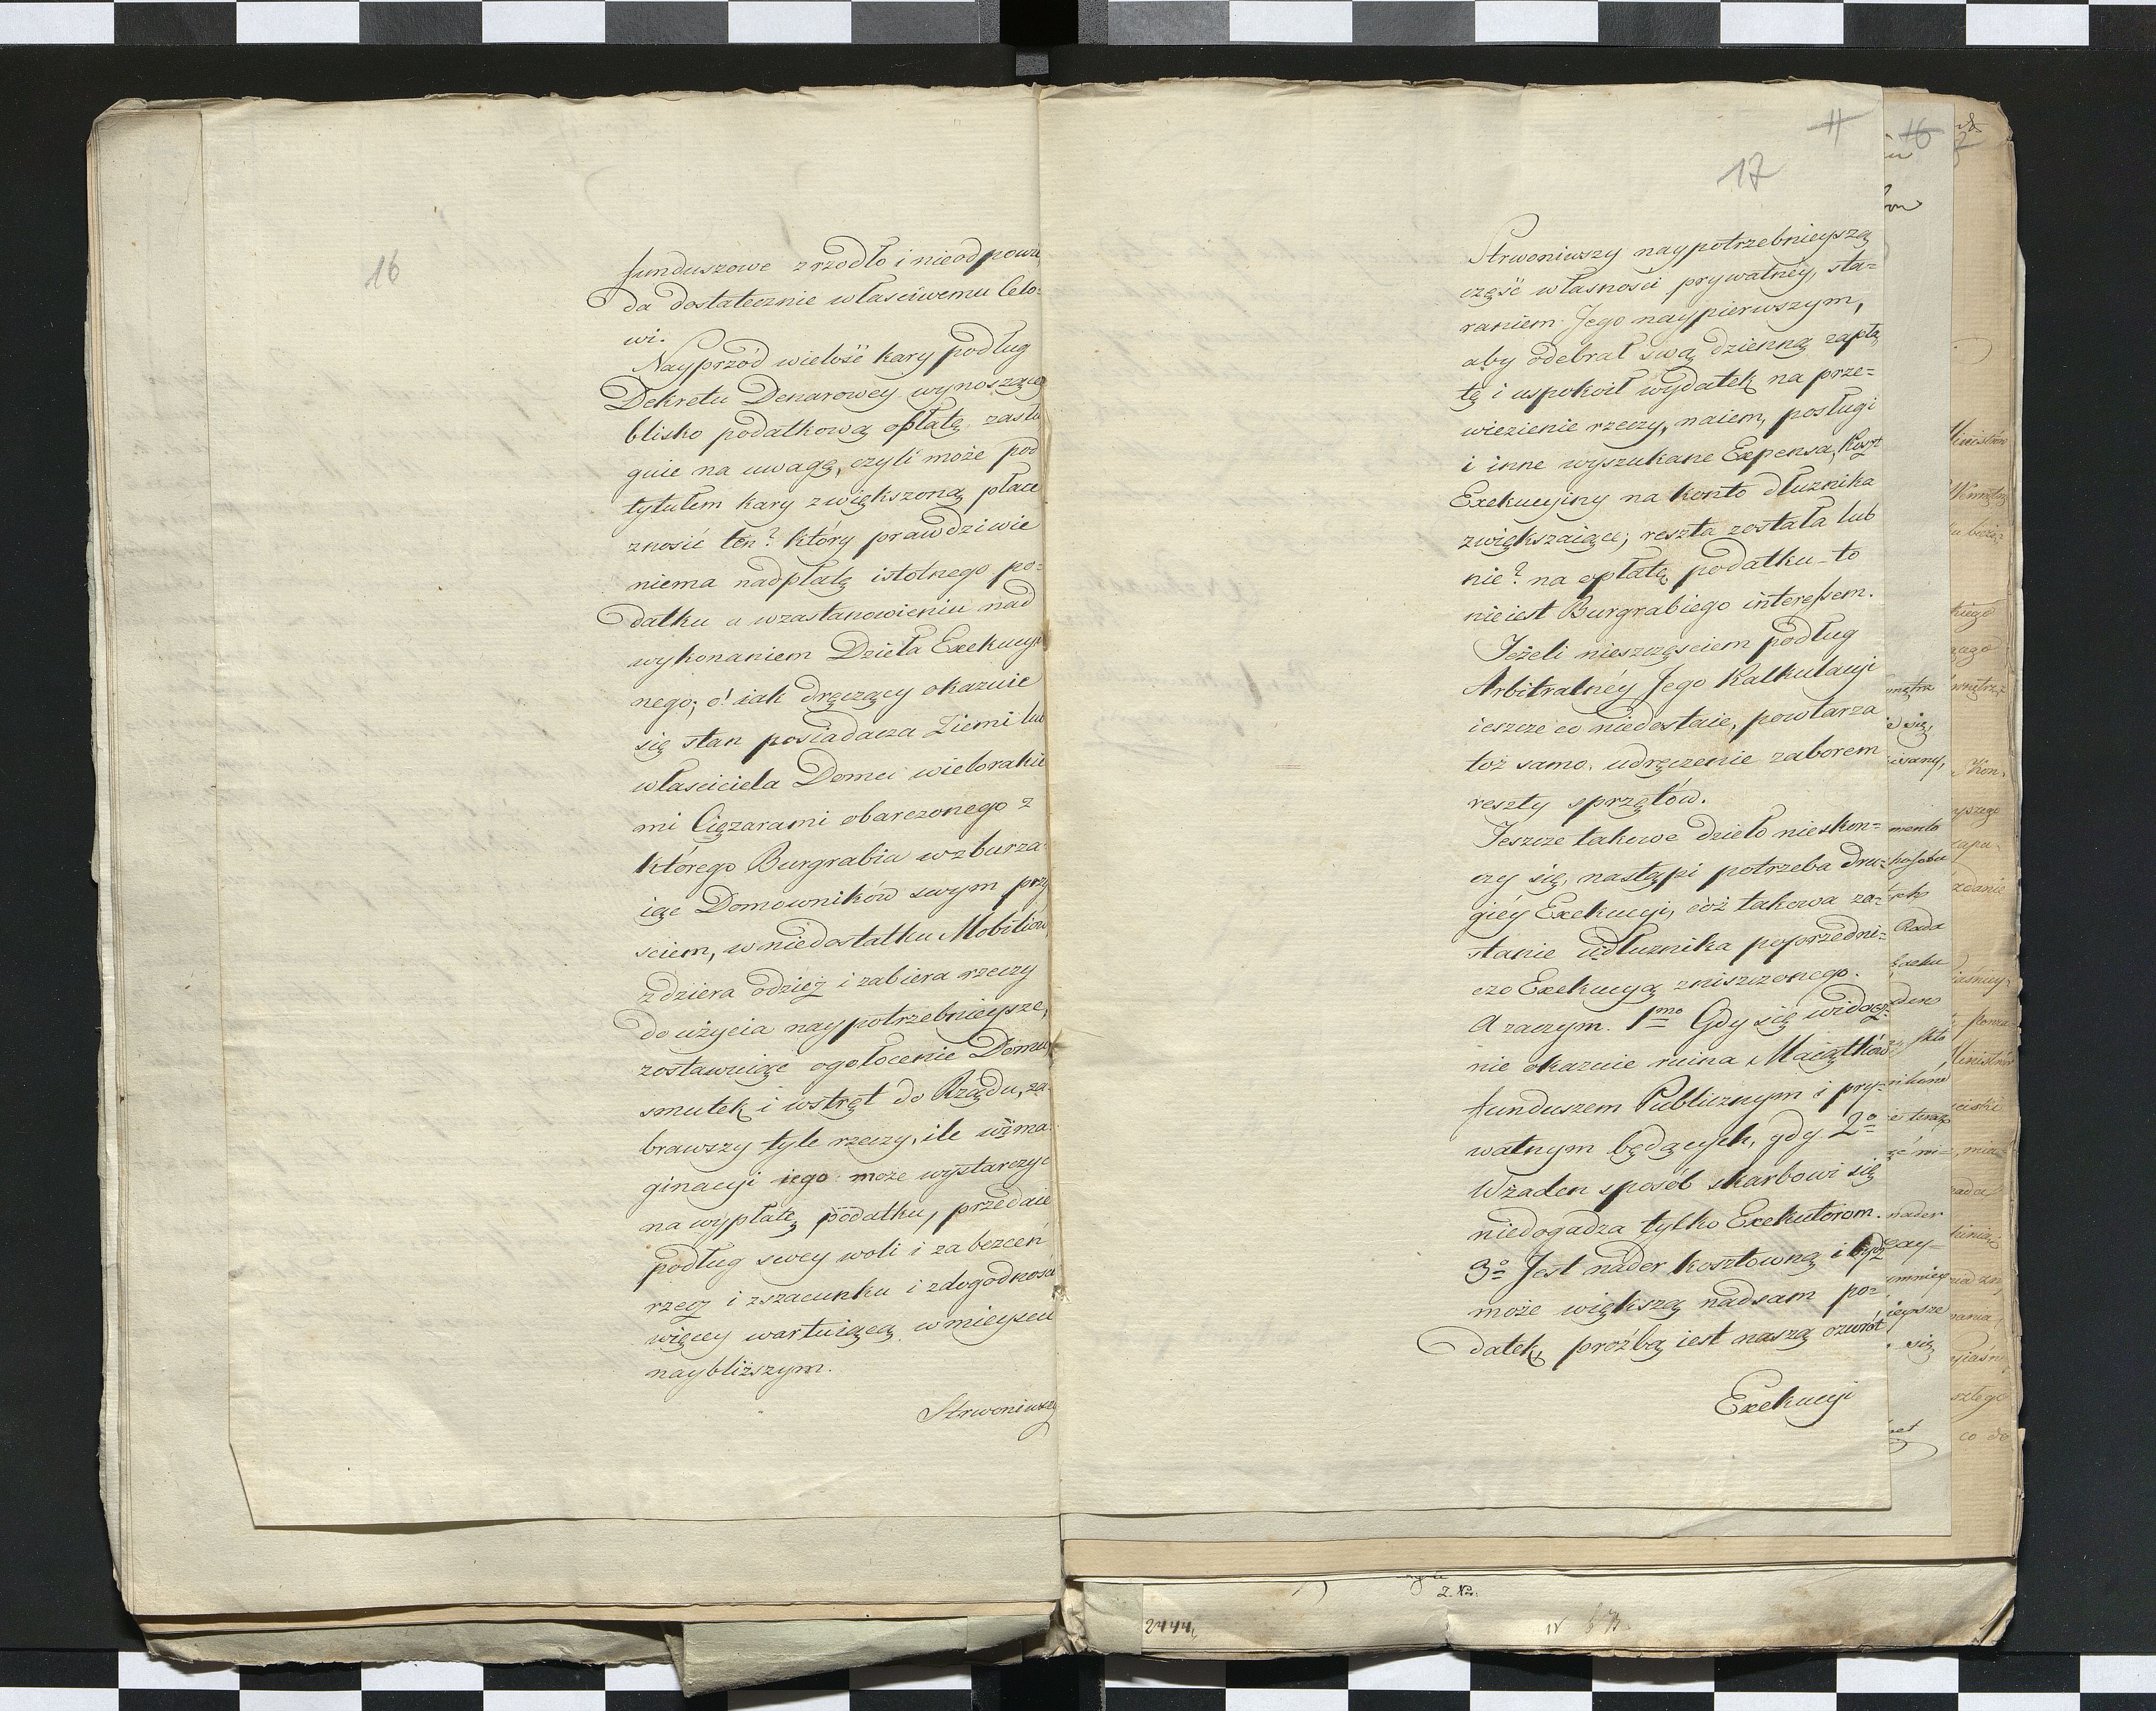 16
funduszowe zrzodło i nieodpowia
da dostatecznie właściwemu Celo=
wi.
Nayprzód wielość kary podług
Dekretu Denarowey wynoszącą
blisko podatkową opłatę zasłu
guie na uwagę, czyli może pod
tytułem kary zwiększoną płacę
znosić ten? który prawdziwie
niema nadpłatę istotnego po=
datku a wzastanowieniu nad
wykonaniem Dzieła Exekucyi
nego; o! iak dręczący okazuie
się stan posiadacza Ziemi lub
właściciela Domu wielorakie
mi Ciężarami obarczonego z
którego Burgrabia wzburza
iąc Domowników swym przy
sciem, w niedostatku Mobiliów
zdziera odzież i zabiera rzeczy
do użycia naypotrzebnieysze,
zostawuiąc ogołocenie Domu,
smutek i wstręt do Rządu, za=
brawszy tyle rzeczy, ile wima
ginacyi iego może wystarczyć
na wypłatę podatku, przedaie
podług swey woli i za bezcen
rzecz i zszacunku i zdogodności
więcey wartuiącą w mieyscu
naybliższym.
Strwoniwszy
11
17
Strwoniwszy naypotrzebnieyszą
część własności prywatnéy, sta=
raniem Jego naypierwszym,
aby odebrał swą dzienną zapła
tę i uspokoił wydatek na prze=
wiezienie rzeczy, naiem, posługi
i inne wyszukane Expensa, Koszt
Exekucyiny na konto dłużnika
zwiększaiące; reszta została lub
nie? na opłatę podatku - to
nieiest Burgrabiego interessem.
Jeżeli nieszczęsciem podług
Arbitralnéy Jego Kalkulacyi
ieszcze co niedostaie, powtarza
toż samo udręczenie zaborem
reszty sprzętów.
Jeszcze takowe dzieło nieskon=
czy się, nastąpi potrzeba dru=
giéy Exekucyi, cóż takowa za=
stanie udłużnika poprzedni=
czo Exekucyą zniszczonego.
A zaczym. 1mo Gdy się widocz=
nie okazuie ruina Maiątków
funduszem Publicznym i pry=
watnym będących, gdy 2o
Wżaden sposób skarbowi się
niedogadza tylko Exekutorom.
3o Jest nader kosztowną i bydz
może większą nadsam po=
datek, proźbą iest naszą ozwrót
Exekucyi
16
Rada
2444